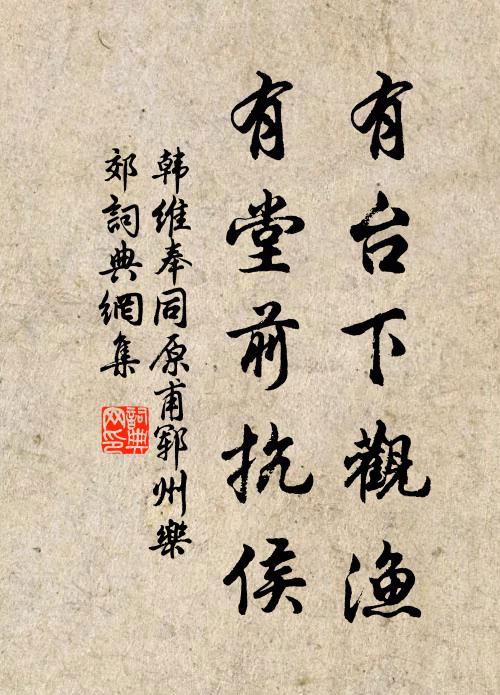 有台下觀漁
有堂前抗侯
韩維奉同原甫鄆州樂
郊詞典網集
詞典
网印